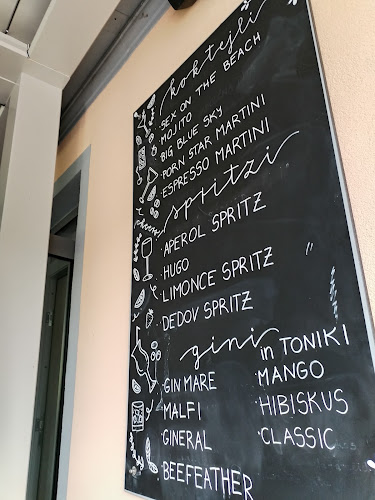 koktejli
·SEX ON THE BEACH
·MOJITO
·BIG BLUE SKY
·PORN STAR MARTINI
·ESPRESSO MARTINI
cheers
spritzi
·APEROL SPRITZ
·HUGO
·LIMONCE SPRITZ
·DEDOV SPRITZ
gini in TONIKI
·GIN MARE ·MANGO
·MALFI ·HIBISKUS
·GINERAL ·CLASSIC
·BEEFEATHER